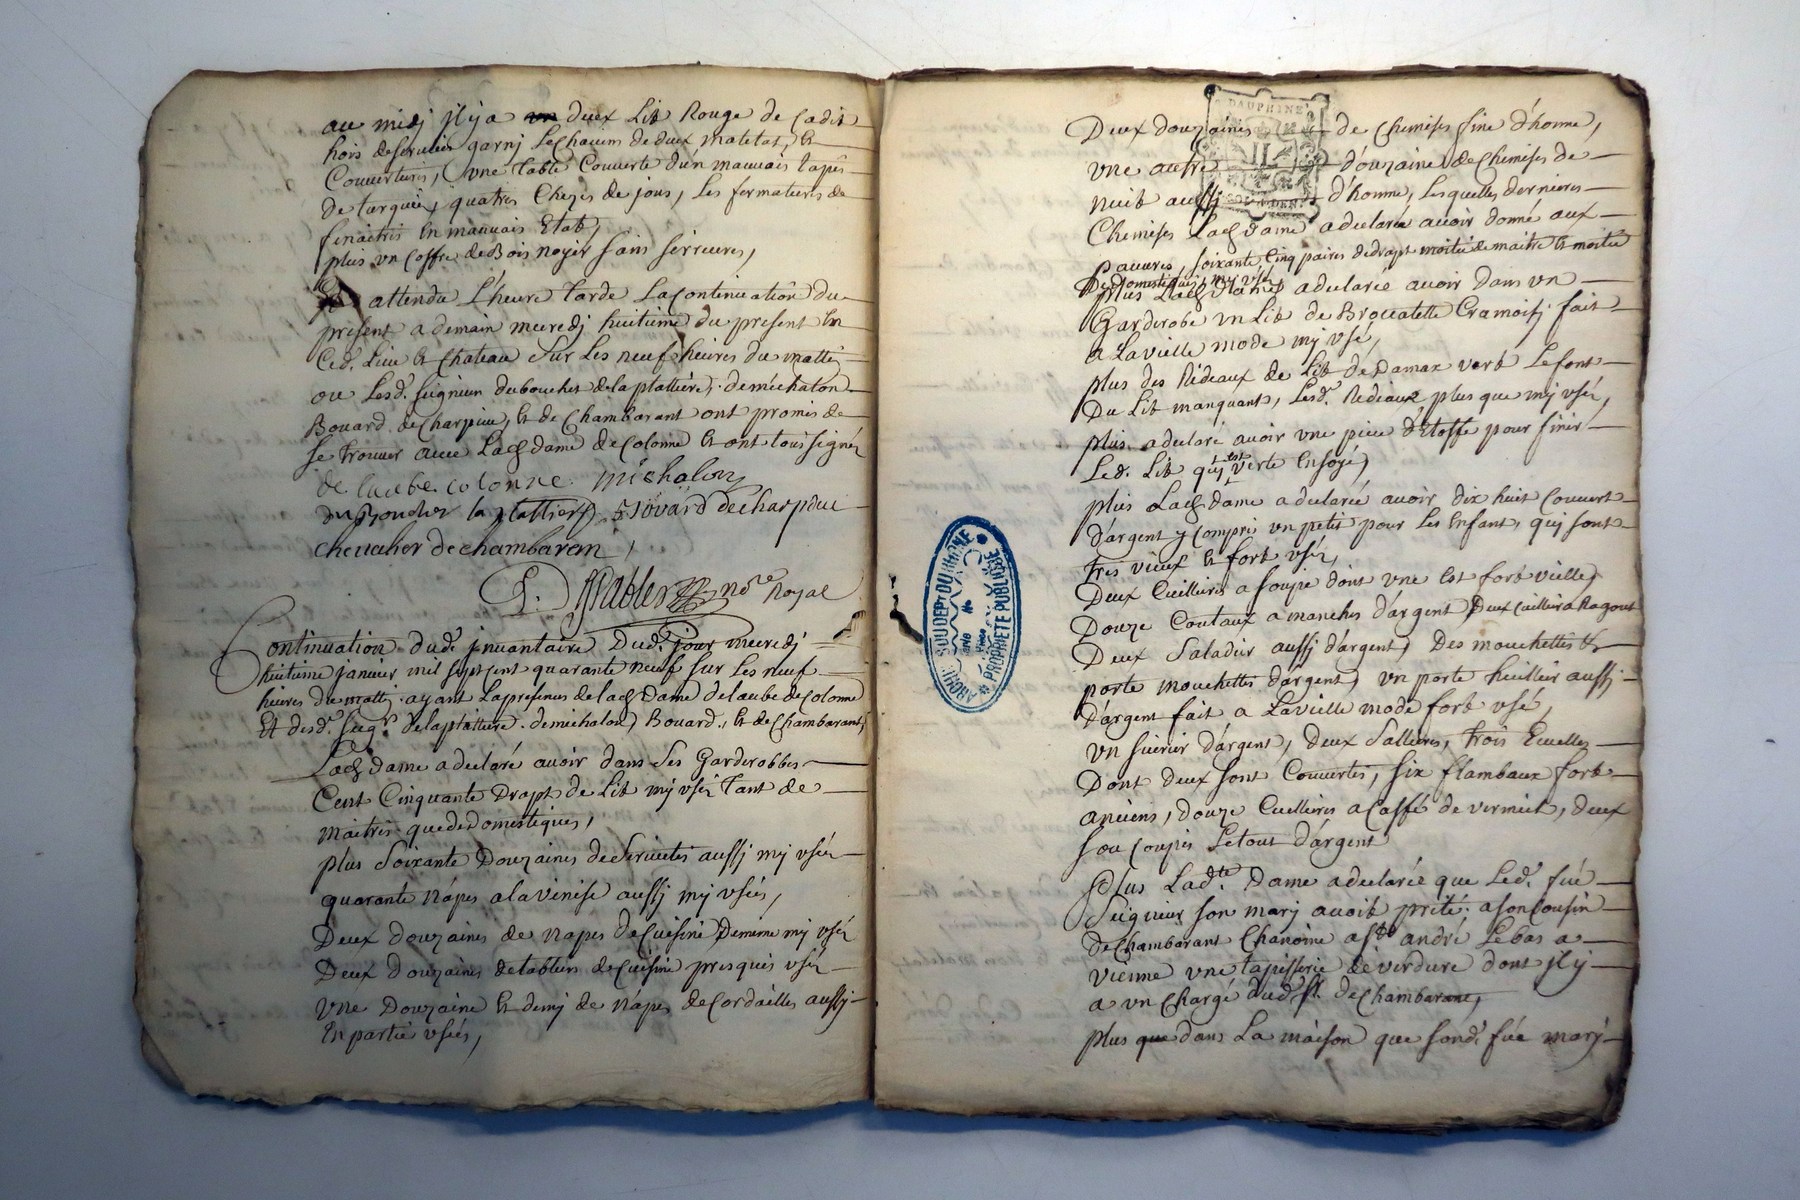 au midj jl y a deux Lit Rouge de Cadis
hois deservieir garnj Lechacun de deux matelat, &
Couvertures, une table Couverte d'un mauvais tapis
de turquie, quatres Cheses de jour, Les fermatures de
fenaitres En mauvais Etat,
plus un Coffre de Bois noyér sans sérreures,
attendu L'heure tarde La Continuation du
présent a demain mecredj huitieme du present En
Ced. Lieu & Chateau Sur Les neuf heures du mattin
ou Lesd. seigneurs duboucher de la plattiere, de michalon
Bouard de Charpieu, & de Chambarant ont promis de
se trouver avec Lad dame de Colonne & ont tous signéz
de laube colonne michalon
du Boucher la plattiere Bovard de charpieu
chevalier de chambaran,
nore Royal
Continuation dud. jnvantaire Dud. jour mecredj
huitieme janvier mil sept cent quarante neuf sur Les neuf
heures du mattin ayant La presence de lad Dame delaube de Colonne
Et desd. seigrs. de la plattiere. de michalon, Bouard, & de Chambarant,
Lad dame a declaré avoir dans Ses Garderobbes
Cent Cinquante Drapt de Lit mj uséz tant de
maitres que de domestiques,
plus Soixante Douzaines de Serviettes aussj mj uséz
quarante Napes a la venise aussj mj uséés,
Deux douzaines de napes de Cuisine Demême mj uséz
Deux douzaines de tabliers de Cuisine presques uséz
une Douzaine & demj de Nâpes de Cordailles aussj
En partie usées,
Deux douzaines de chemises fine d'homme,
une autre d'ouzaine de Chemises de
nuit aussj d'homme, Lesquelles dernieres
Chemises Lad dame a declaréé avoir donné aux
pauvres, soixante Cinq paires de drapt moitié de maitre & moitié
De domestiques mj usé
plus Lad Dame a declaréé avoir dans un
Garderobe un Lit de Brocatelle Cramoisj fait
a La vielle mode mj usé,
plus des Rideaux de Lit de Damax vert Le font
Du Lit manquant, Lesd. Rideaux plus que mj uséz,
plus a declaré avoir une piece d'Etoffe pour finir
Led. Lit quj est verte En soye,
plus Lad dame a declaréé avoir dix huit Couvert
d'argent y Compris un petit pour Les Enfants quj sont
tres vieux & fort uséz,
Deux Cuillieres a soupe dont une Est fort vielle,
Douze Coutaux a manches d'argent Deux Cuilliere a Ragout
Deux Saladier aussj d'argent, Des mouchettes &
porte mouchettes d'argent, un porte huillier aussj
d'argent fait a La vielle mode fort usé,
un sucrier d'argent, deux Sallieres, trois Ecuelles
Dont deux sont Couvertes, six flambaux fort
anciens, douze Cuillieres a Caffé de vermiel, deux
sou Coupes Le tout d'argent
Plus Ladte. Dame a declaréé que Led. fué
Seigneur son marj avoit preté a son Cousin
De Chambarant Chanoine a St. andré Le bas a
vienne une tapisserie de verdure dont jl y
a un Chargé dud. sr. de Chambarant,
plus que dans La maison que sond. fué marj
DAUPHINÉ
ARCHIVES DU DEPT DU RHONE
PROPRIETE PUBLIQUE